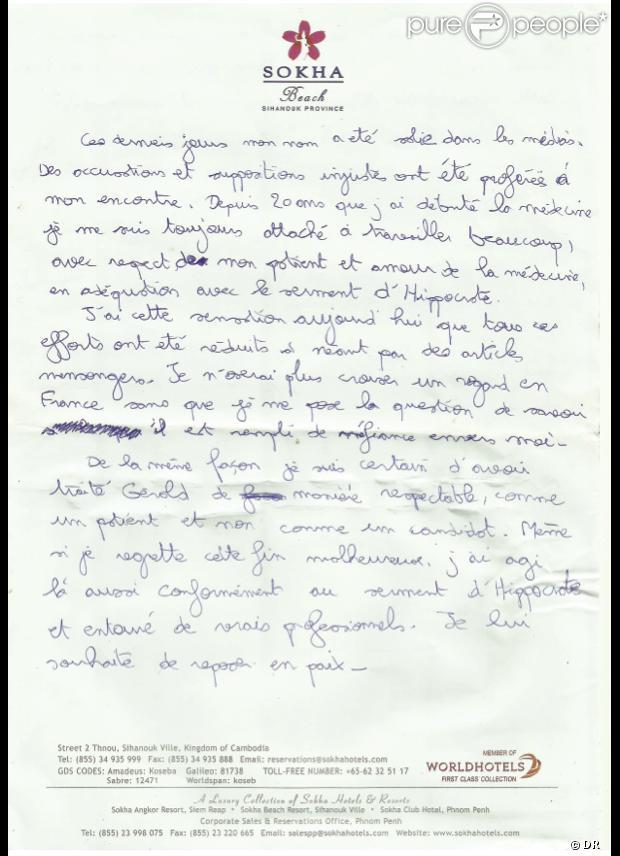 pure people
SOKHA
Beach
SIHANOUK PROVINCE
Ces derniers jours mon nom a été sali dans les médias.
Des accusations et suppositions injustes ont été proférées à
mon encontre. Depuis 20 ans que j'ai débuté la médecine
je me suis toujours attaché à travailler beaucoup,
avec respect de mon patient et amour de la médecine,
en adéquation avec le serment d'Hippocrate.
J'ai cette sensation aujourd'hui que tous ces
efforts ont été réduits à néant par des articles
mensongers. Je n'oserai plus croiser un regard en
France sans que je me pose la question de savoir
il est rempli de méfiance envers moi-
De la même façon je suis certain d'avoir
traité Gérald de manière respectable, comme
un patient et non comme un candidat. Même
si je regrette cette fin malheureuse, j'ai agi
là aussi conformément au serment d'Hippocrate
et entouré de vrais professionnels. Je lui
souhaite de reposer en paix-
Street 2 Thnou, Sihanouk Ville, Kingdom of Cambodia
Tel: (855) 34 935 999 Fax: (855) 34 935 888 Email: reservations@sokhahotels.com
GDS CODES: Amadeus: Koseba Galileo: 81738 TOLL-FREE NUMBER: +65-62 32 51 17
Sabre: 12471 Worldspan: koseb
MEMBER OF
WORLDHOTELS
FIRST CLASS COLLECTION
A Luxury Collection of Sokha Hotels & Resorts
Sokha Angkor Resort, Siem Reap • Sokha Beach Resort, Sihanouk Ville • Sokha Club Hotel, Phnom Penh
Corporate Sales & Reservations Office, Phnom Penh
Tel: (855) 23 998 075 Fax: (855) 23 220 665 Email: salespp@sokhahotels.com Website: www.sokhahotels.com
© DR